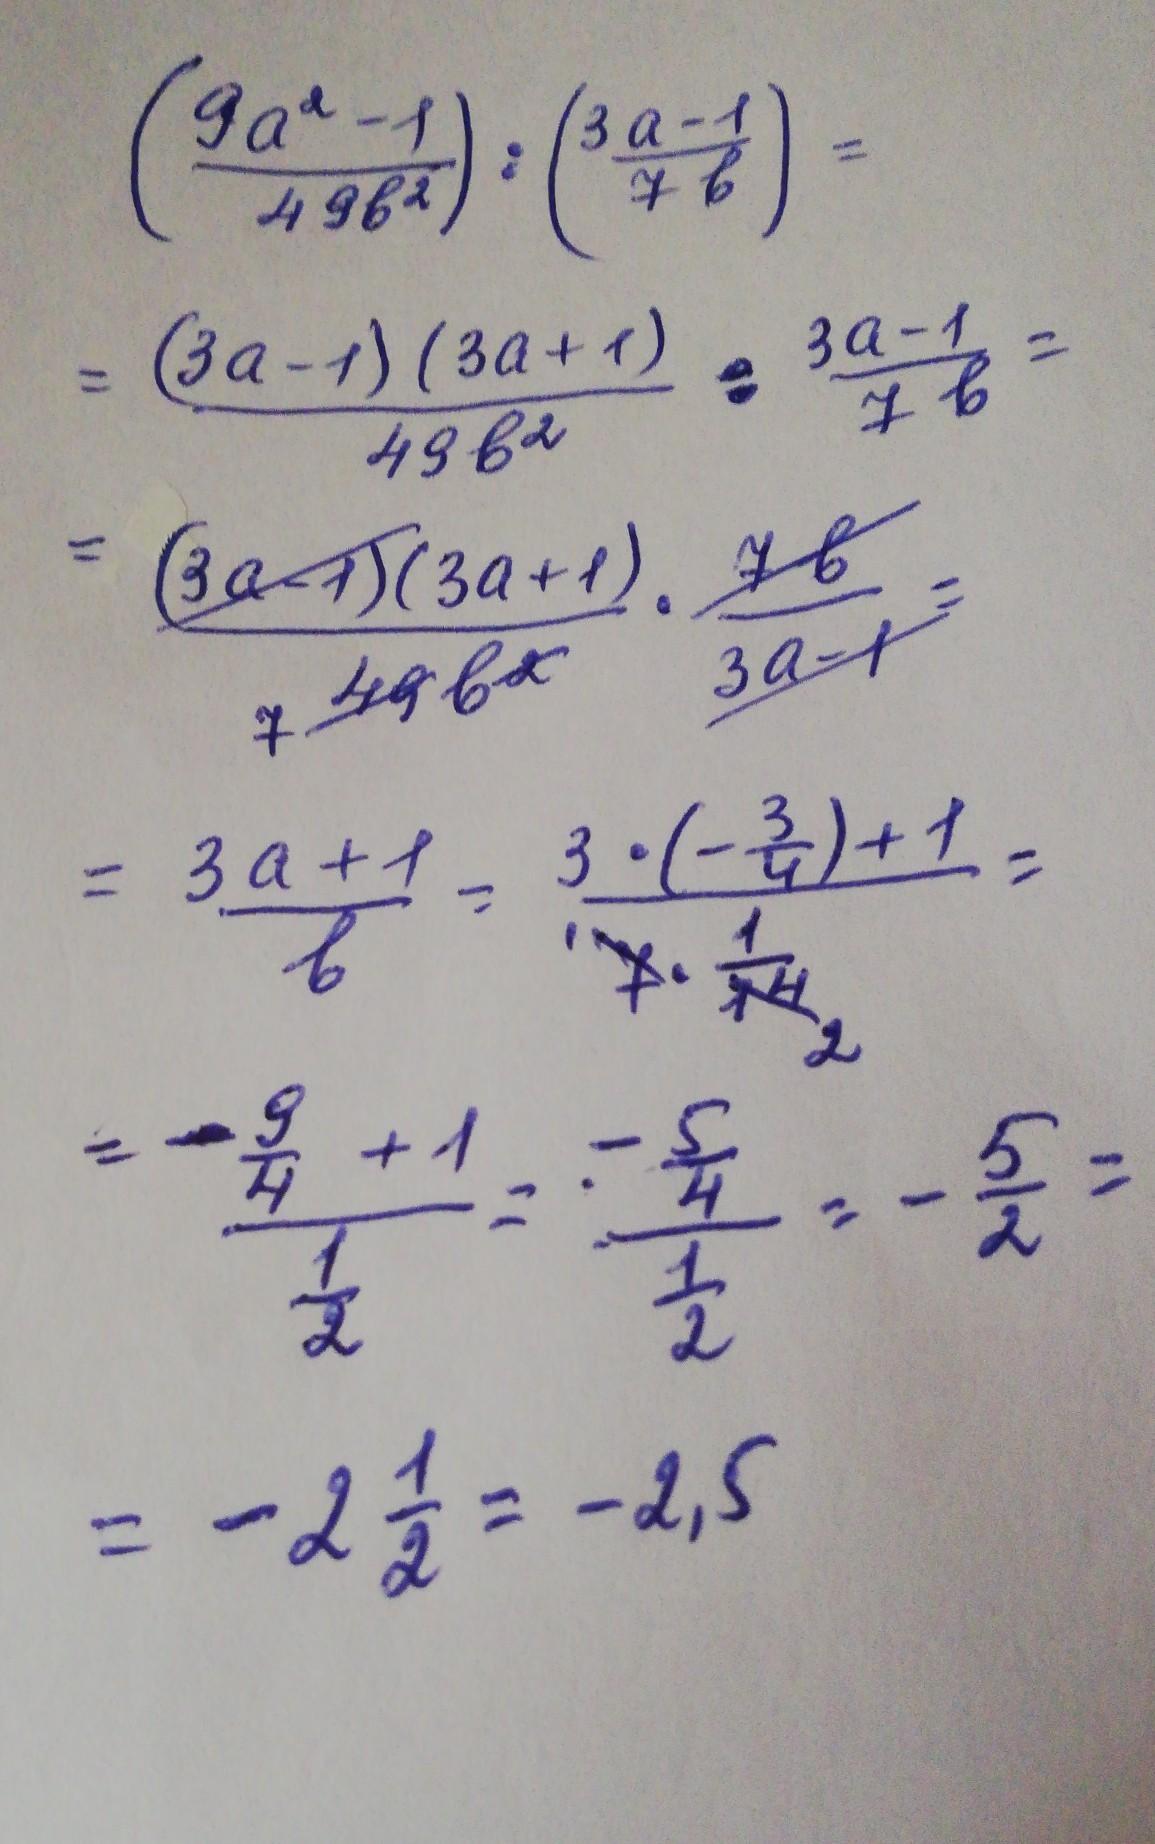 (9a² - 1 / 49b²) : (3a - 1 / 7b) =
= (3a - 1)(3a + 1) / 49b² : 3a - 1 / 7b =
= (3a - 1)(3a + 1) / 7 49b² · 7b / 3a - 1 =
= 3a + 1 / b = 3 · (- 3/4) + 1 / 1 7 · 1/14 2 =
= - 9/4 + 1 / 1/2 = - 5/4 / 1/2 = - 5/2 =
= - 2 1/2 = - 2,5